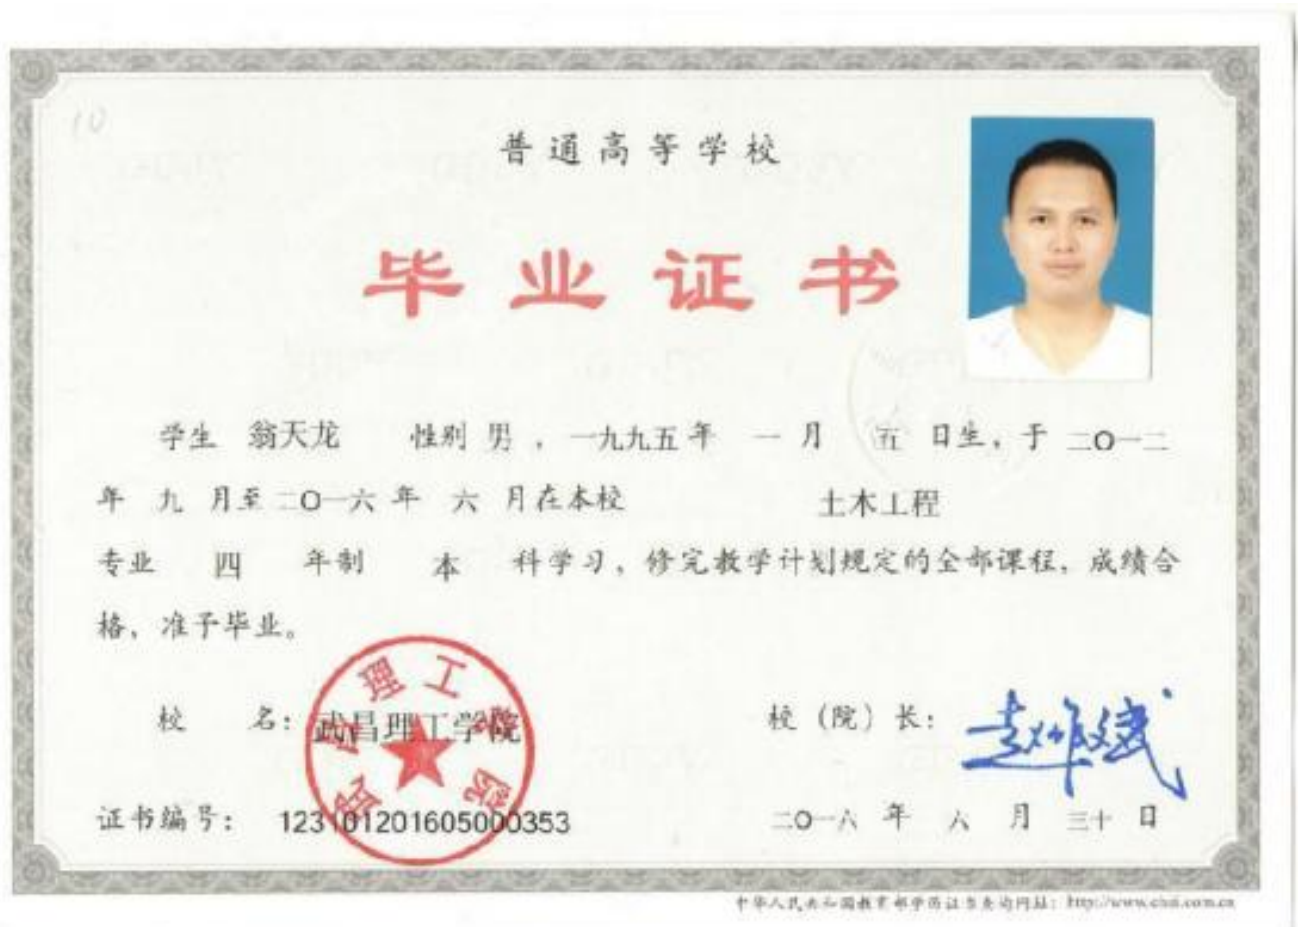 10
普通高等学校
毕业证书
学生 翁天龙 性别 男，一九九五年 一 月 五 日生，于 二O一二
年 九 月至二O一六年 六 月在本校 土木工程
专业 四 年制 本 科学习，修完教学计划规定的全部课程，成绩合
格，准予毕业。
校 名：武昌理工学院
武昌理工学院
校（院）长：赵作斌
证书编号：123101201605000353
二O一六 年 六 月 三十 日
中华人民共和国教育部学历证书查询网址：http://www.chsi.com.cn